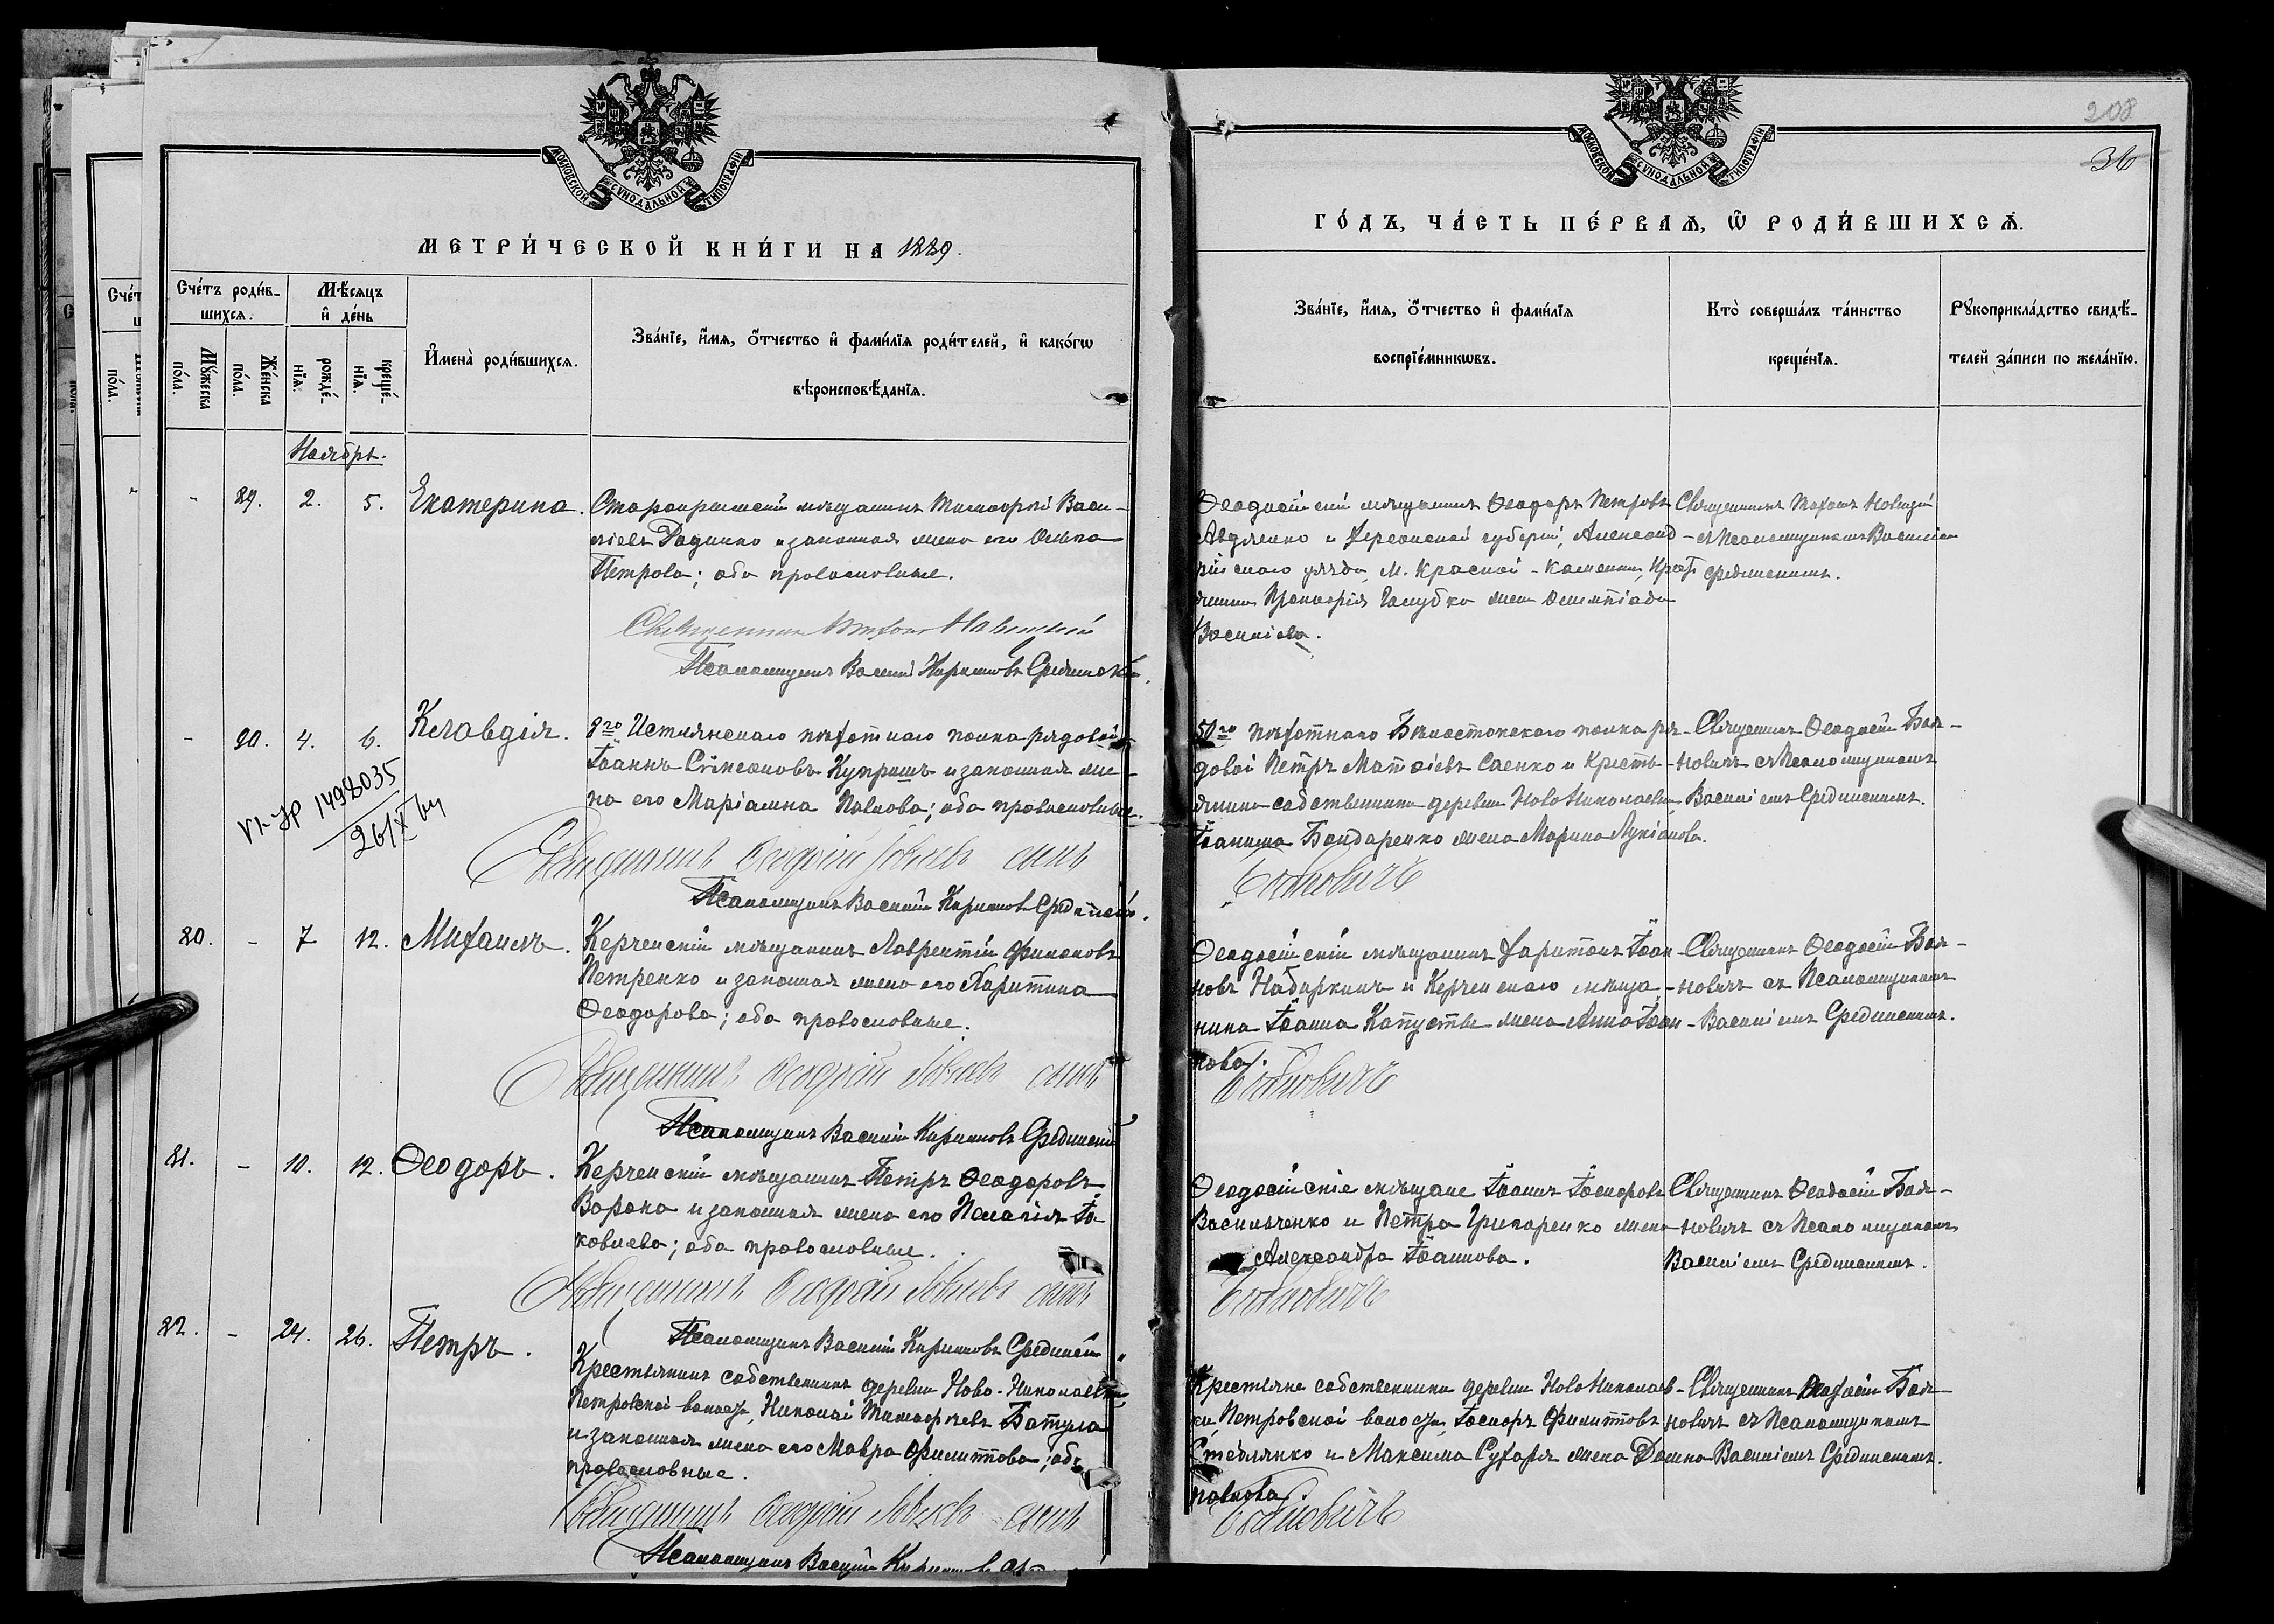 МОСКОВСКОЙ СУНОДАЛЬНОЙ ТИПОГРАФІИ
МЕТРИ́ЧЕСКОЙ КНИ́ГИ НА 1889.
Сче́тъ роди́в-
шихся.
Мѣ́сяцъ
и де́нь
Мꙋ́жеска
по́ла.
Же́нска
по́ла.
рожде́-
нїя.
креще́-
нїя.
Имена̀ роди́вшихся.
Зва́нїе, и́мя, ѻ́тчество и фами́лїя роди́телей, и како́гѡ
вѣроисповѣ́данїя.
Ноябрь.
- 29. 2. 5. Екатерина. Старокрымскій мѣщанинъ Тимофей Васи-
ліевъ Дадинко и законная жена его Ольга
Петрова; оба православные.
Священникъ Новицкій
Псаломщикъ Василій Кириловъ Срединскій.
- 30. 4. 6. Клавдія. пѣхотнаго полка рядовой
Іоаннъ Сѵмеоновъ Купришъ и законная же-
на его Маріамна Павлова; оба православные.
VI-ЯР 1498035
26/X 64
Священникъ Ѳеодосій Іовлевъ сынъ
Псаломщикъ Василій Кириловъ Срединскій.
20. - 7 12. Михаилъ. Керченскій мѣщанинъ Лаврентій Филиповъ
Петренко и законная жена его Харитина
Ѳеодорова; оба православные.
Священникъ Ѳеодосій Іовлевъ сынъ
Псаломщикъ Василій Кириловъ Срединскій
21. - 10. 12. Ѳеодоръ. Керченскій мѣщанинъ Петръ Ѳеодоровъ
Ворона и законная жена его Пелагія Іа-
ковлева; оба православные.
Священникъ Ѳеодосій Іовлевъ сынъ
Псаломщикъ Василій Кириловъ Срединскій
22. - 24. 26. Петръ. Крестьянинъ собственникъ деревни Ново-Николаевки
Петровской волости, Николай Тимофеевъ Батула
и законная жена его Мавра Филиппова; оба
православные.
Священникъ Ѳеодосій Іовлевъ сынъ
Псаломщикъ Василій Кириловъ
МОСКОВСКОЙ СУНОДАЛЬНОЙ ТИПОГРАФІИ
208
36
ГО́ДЪ, ЧА́СТЬ ПЕ́РВАЯ, Ѡ РОДИ́ВШИХСЯ.
Зва́нїе, и́мя, ѻ́тчество и фами́лїя
воспрїе́мникѡвъ.
Кто̀ соверша́лъ та́инство
креще́нїя.
Рꙋкоприкла́дство свидѣ́-
телей за́писи по жела́нїю.
Ѳеодосійскій мѣщанинъ Ѳеодоръ Петровъ
Авдѣенко и Херсонской губерніи, Александ-
рійскаго уѣзда, м. Красной-Каменки, Крест-
Прокофія Голубка жена Олимпіада
Василіева.
Священникъ Новицкій
съ Псаломщикомъ Василіемъ
Срединскимъ.
50го пѣхотнаго Бѣлостокскаго полка ря-
довой Петръ Матѳіевъ Саенко и Кресть-
янина собственника деревни НовоНиколаевки
Іоанна Бондаренко жена Марина Лукіанова.
Священникъ Ѳеодосій Боя-
новичъ съ Псаломщикомъ
Василіемъ Срединскимъ.
Бояновичъ
Ѳеодосійскій мѣщанинъ Харитонъ Іоан-
новъ Набиркинъ и Керченскаго мѣща-
нина Іоанна Капусты жена Анна Іоан-
нова.
Священникъ Ѳеодосій Боя-
новичъ съ Псаломщикомъ
Василіемъ Срединскимъ.
Бояновичъ
Ѳеодосійскіе мѣщане Іоаннъ Іосифовъ
Васильченко и Петра Григоренко жена
Александра Іоаннова.
Священникъ Ѳеодосій Боя-
новичъ съ Псаломщикомъ
Василіемъ Срединскимъ.
Бояновичъ
Крестьяне собственники деревни НовоНиколаев-
ки, Петровской волости, Іосифъ Филипповъ
Стеблянко и Максима Сухаря жена Домна
Павлова.
Священникъ Ѳеодосій Боя-
новичъ съ Псаломщикомъ
Василіемъ Срединскимъ.
Бояновичъ